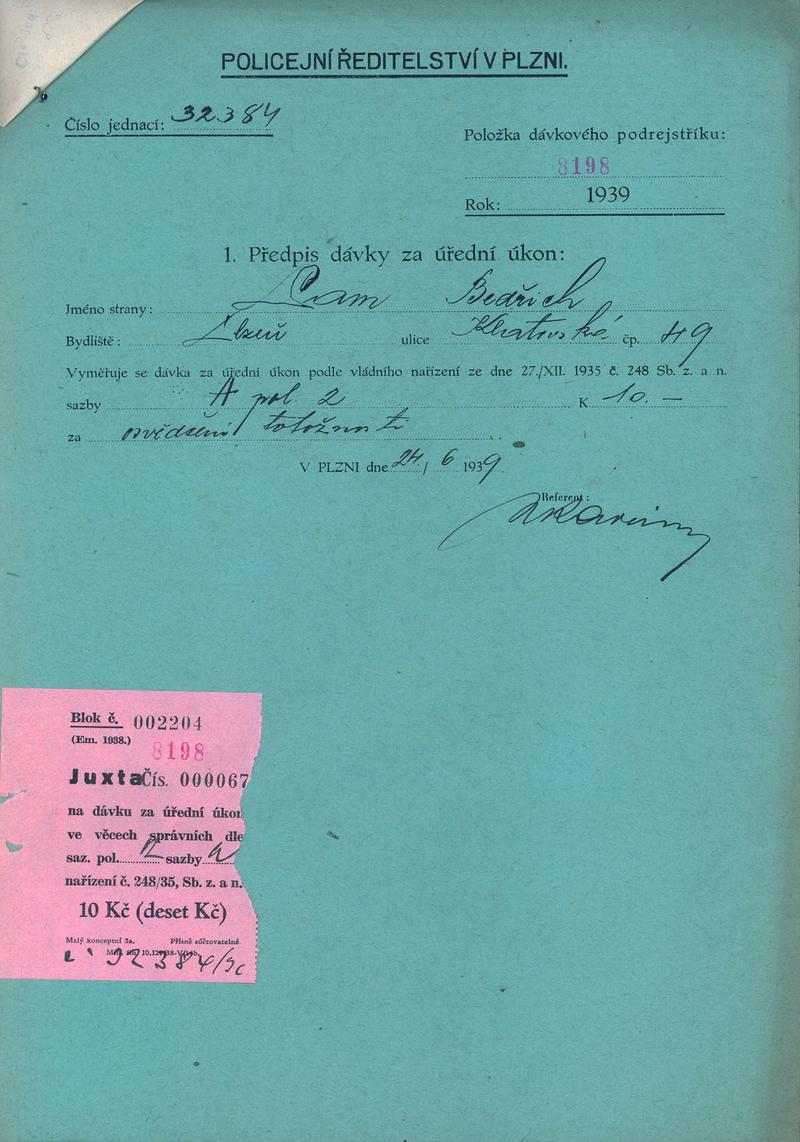 POLICEJNÍ ŘEDITELSTVÍ V PLZNI.
Číslo jednací: 32384
Položka dávkového podrejstříku:
8198
Rok: 1939
1. Předpis dávky za úřední úkon:
Jméno strany: Lam Bedřich
Bydliště: Plzeň ulice Klatovská čp. 49
Vyměřuje se dávka za úřední úkon podle vládního nařízení ze dne 27./XII. 1935 č. 248 Sb. z. a n.
sazby A pol. 2 K 10.—
za osvědčení totožnosti
V PLZNI dne 24/ 6 1939.
Referent:
Blok č. 002204
(Em. 1938.)
8198
Juxta Čís. 000067
na dávku za úřední úkon
ve věcech správních dle
saz. pol. 2 sazby a
nařízení č. 248/35, Sb. z. a n.
10 Kč (deset Kč)
Malý konceptní 5a. Přísně súčtovatelné.
32384/39